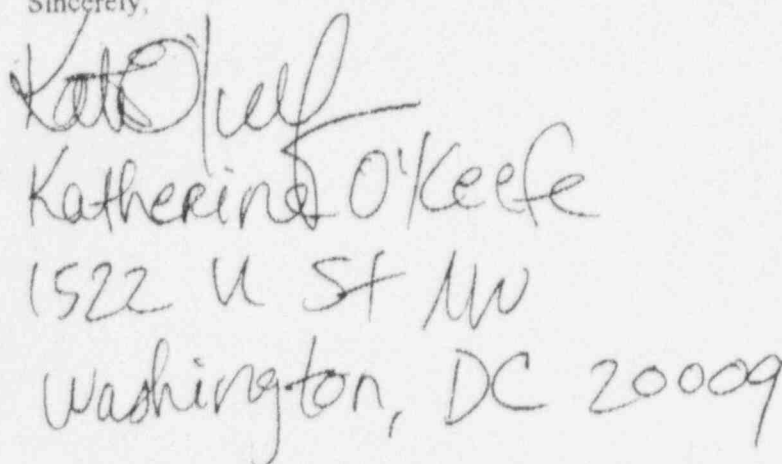 Sincerely,
Kate O'Keefe
Katherine O'Keefe
1522 U St NW
Washington, DC 20009